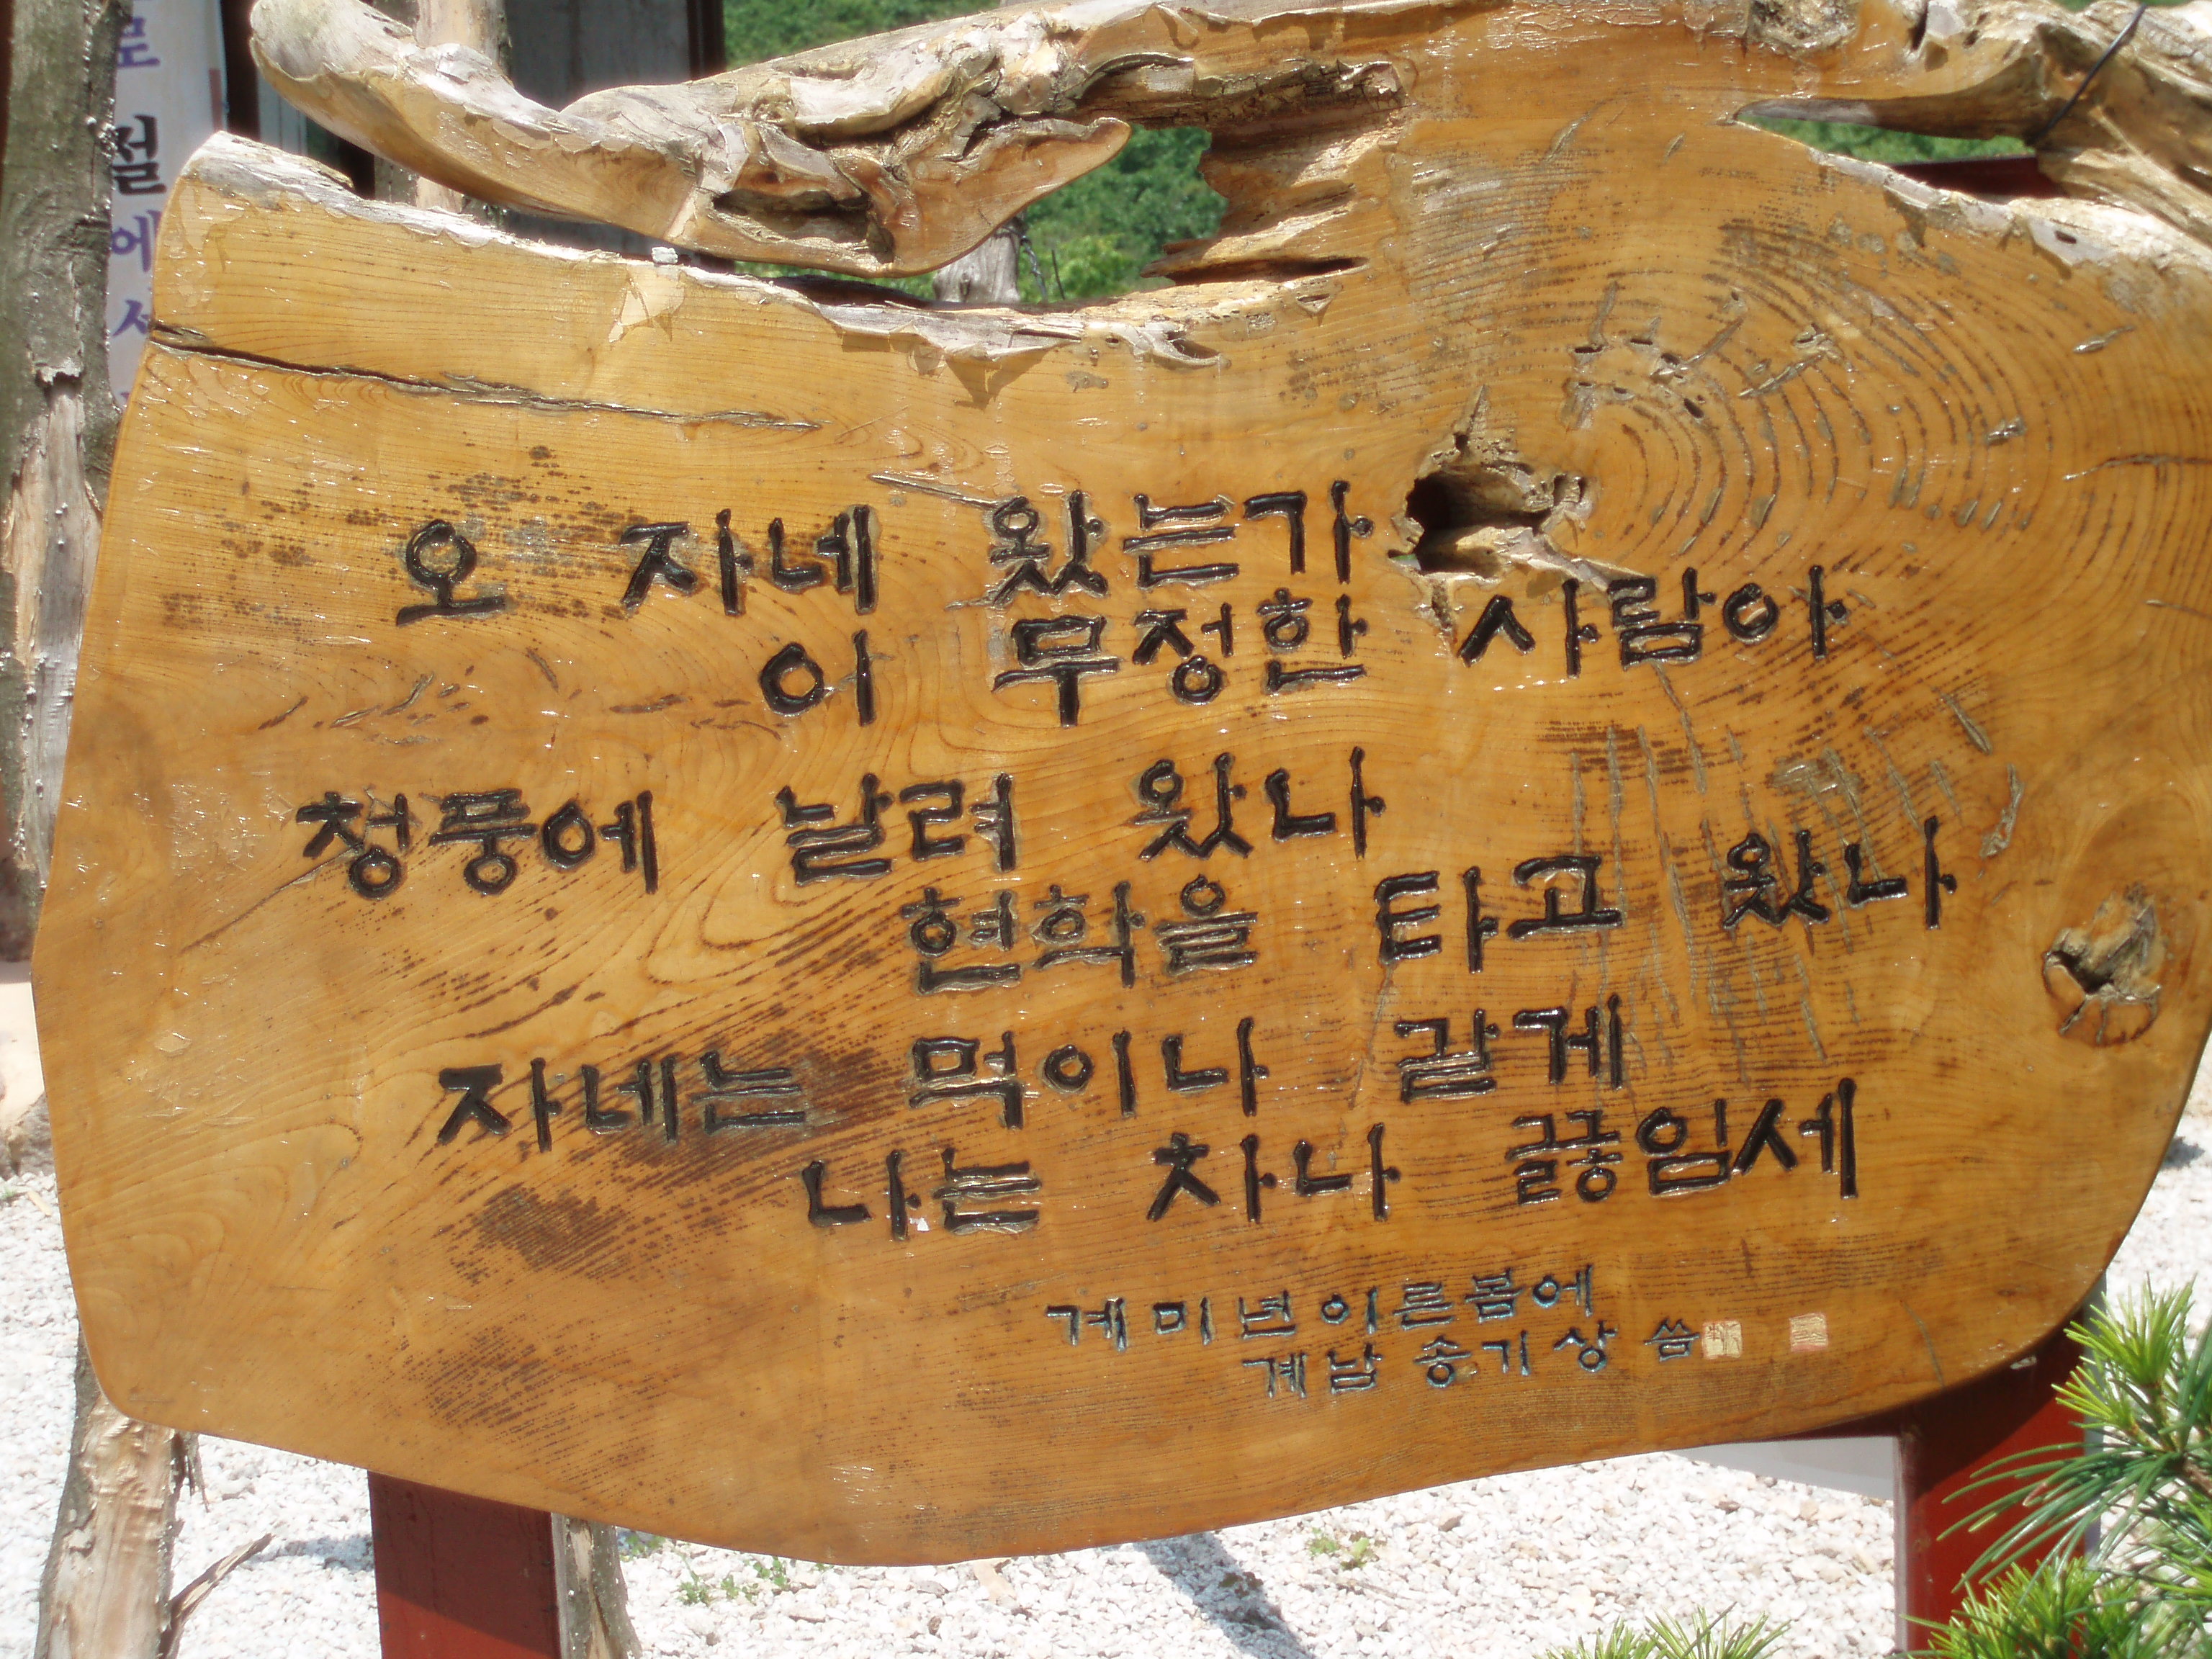 오 자네 왔는가
이 무정한 사람아
청풍에 날려 왔나
현학을 타고 왔나
자네는 먹이나 갈게
나는 차나 끓임세
계미년이른봄에
계남 송기상 씀
절에서